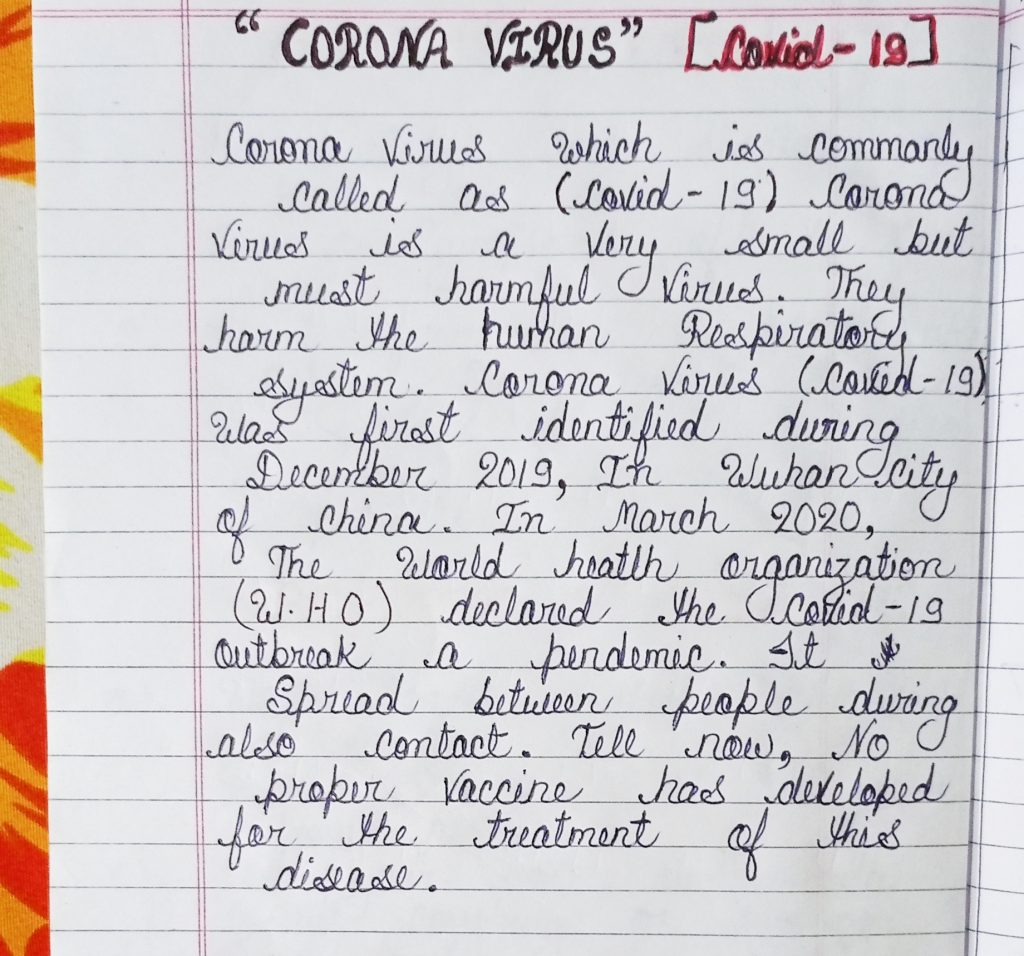 “CORONA VIRUS” [Covid-19]
Corona Virus Which is commanly
called as (covid-19) Corona
Virus is a Very small but
must harmful Virus. They
harm the human Respiratory
system. Corona Virus (Covid-19)
Was first identified during
December 2019, In Wuhan city
of china. In March 2020,
The World heatlh organization
(W.H O) declared the Covid-19
outbreak a pendemic. It
Spread between people during
also contact. Tell now, No
proper vaccine has developed
for the treatment of this
disease.